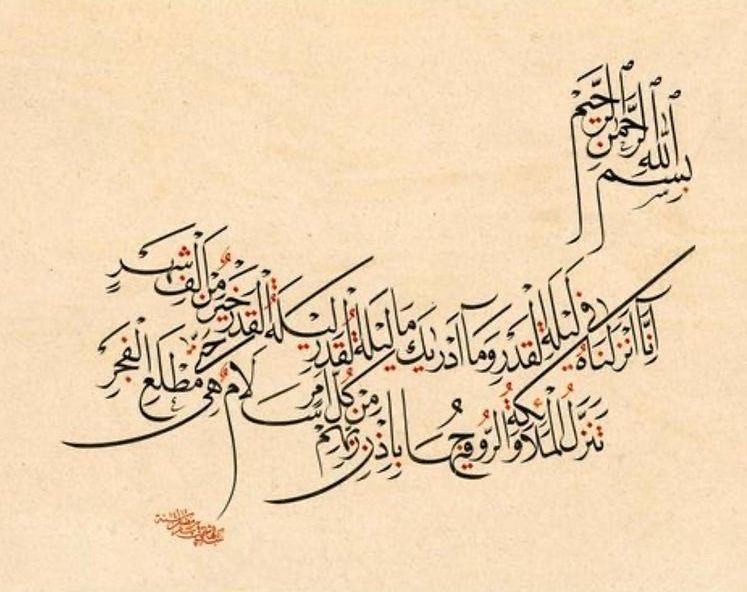 بسم الله الرحمن الرحيم
انا انزلناه في ليلة القدر وما ادريك ما ليلة القدر ليلة القدر خير من الف شهر
تنزل الملائكة والروح فيها باذن ربهم من كل امر سلام هي حتى مطلع الفجر